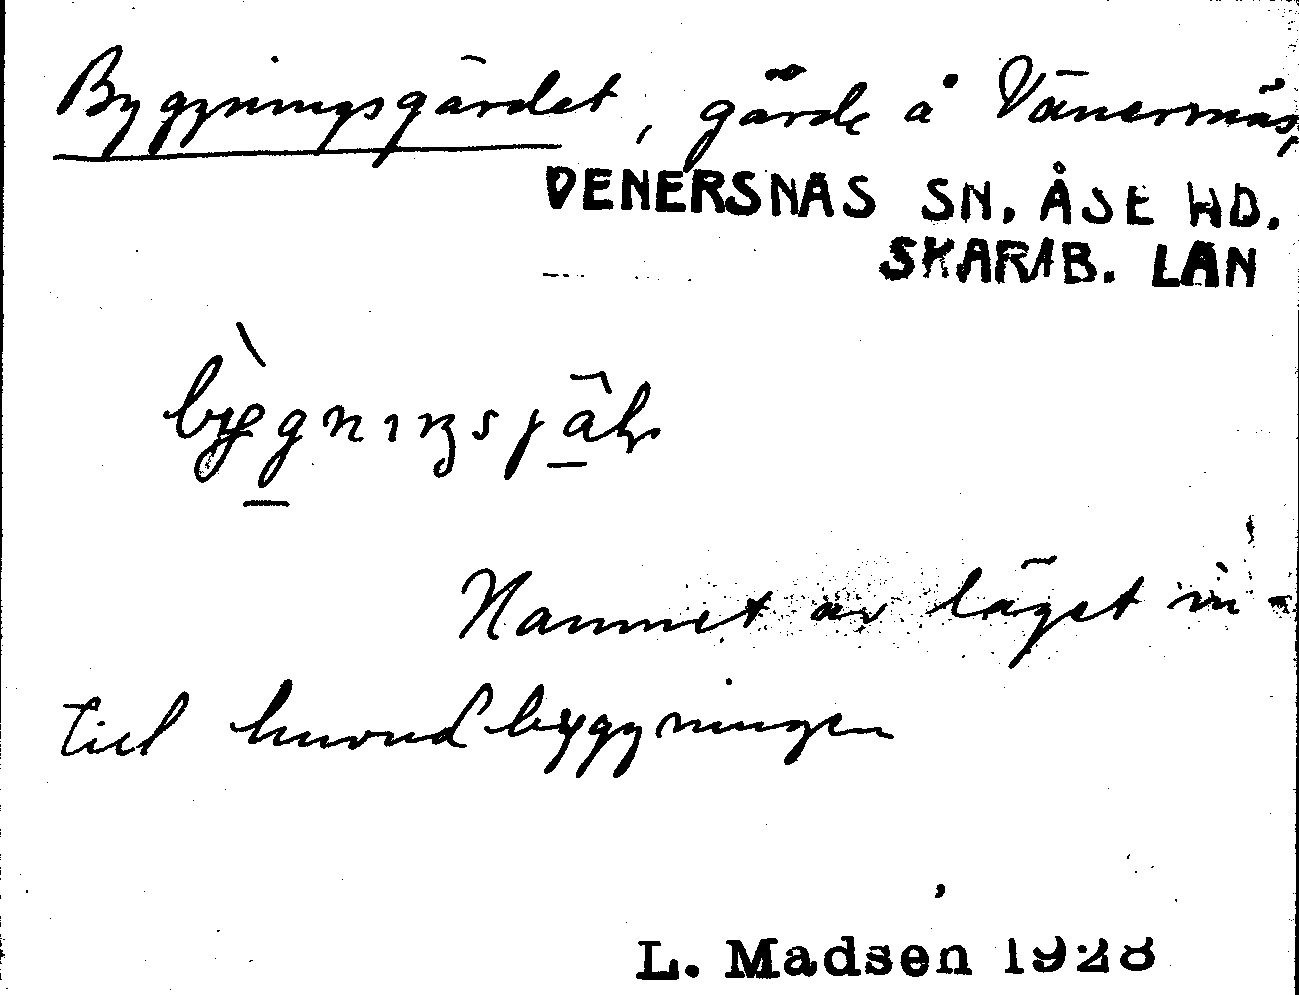 Byggningsgärdet, gärde å Vänernäs,
VENERSNÄS SN. ÅSE HD.
SKARAB. LÄN
Namnet av läget in-
till huvudbyggningen
L. Madsen 1928